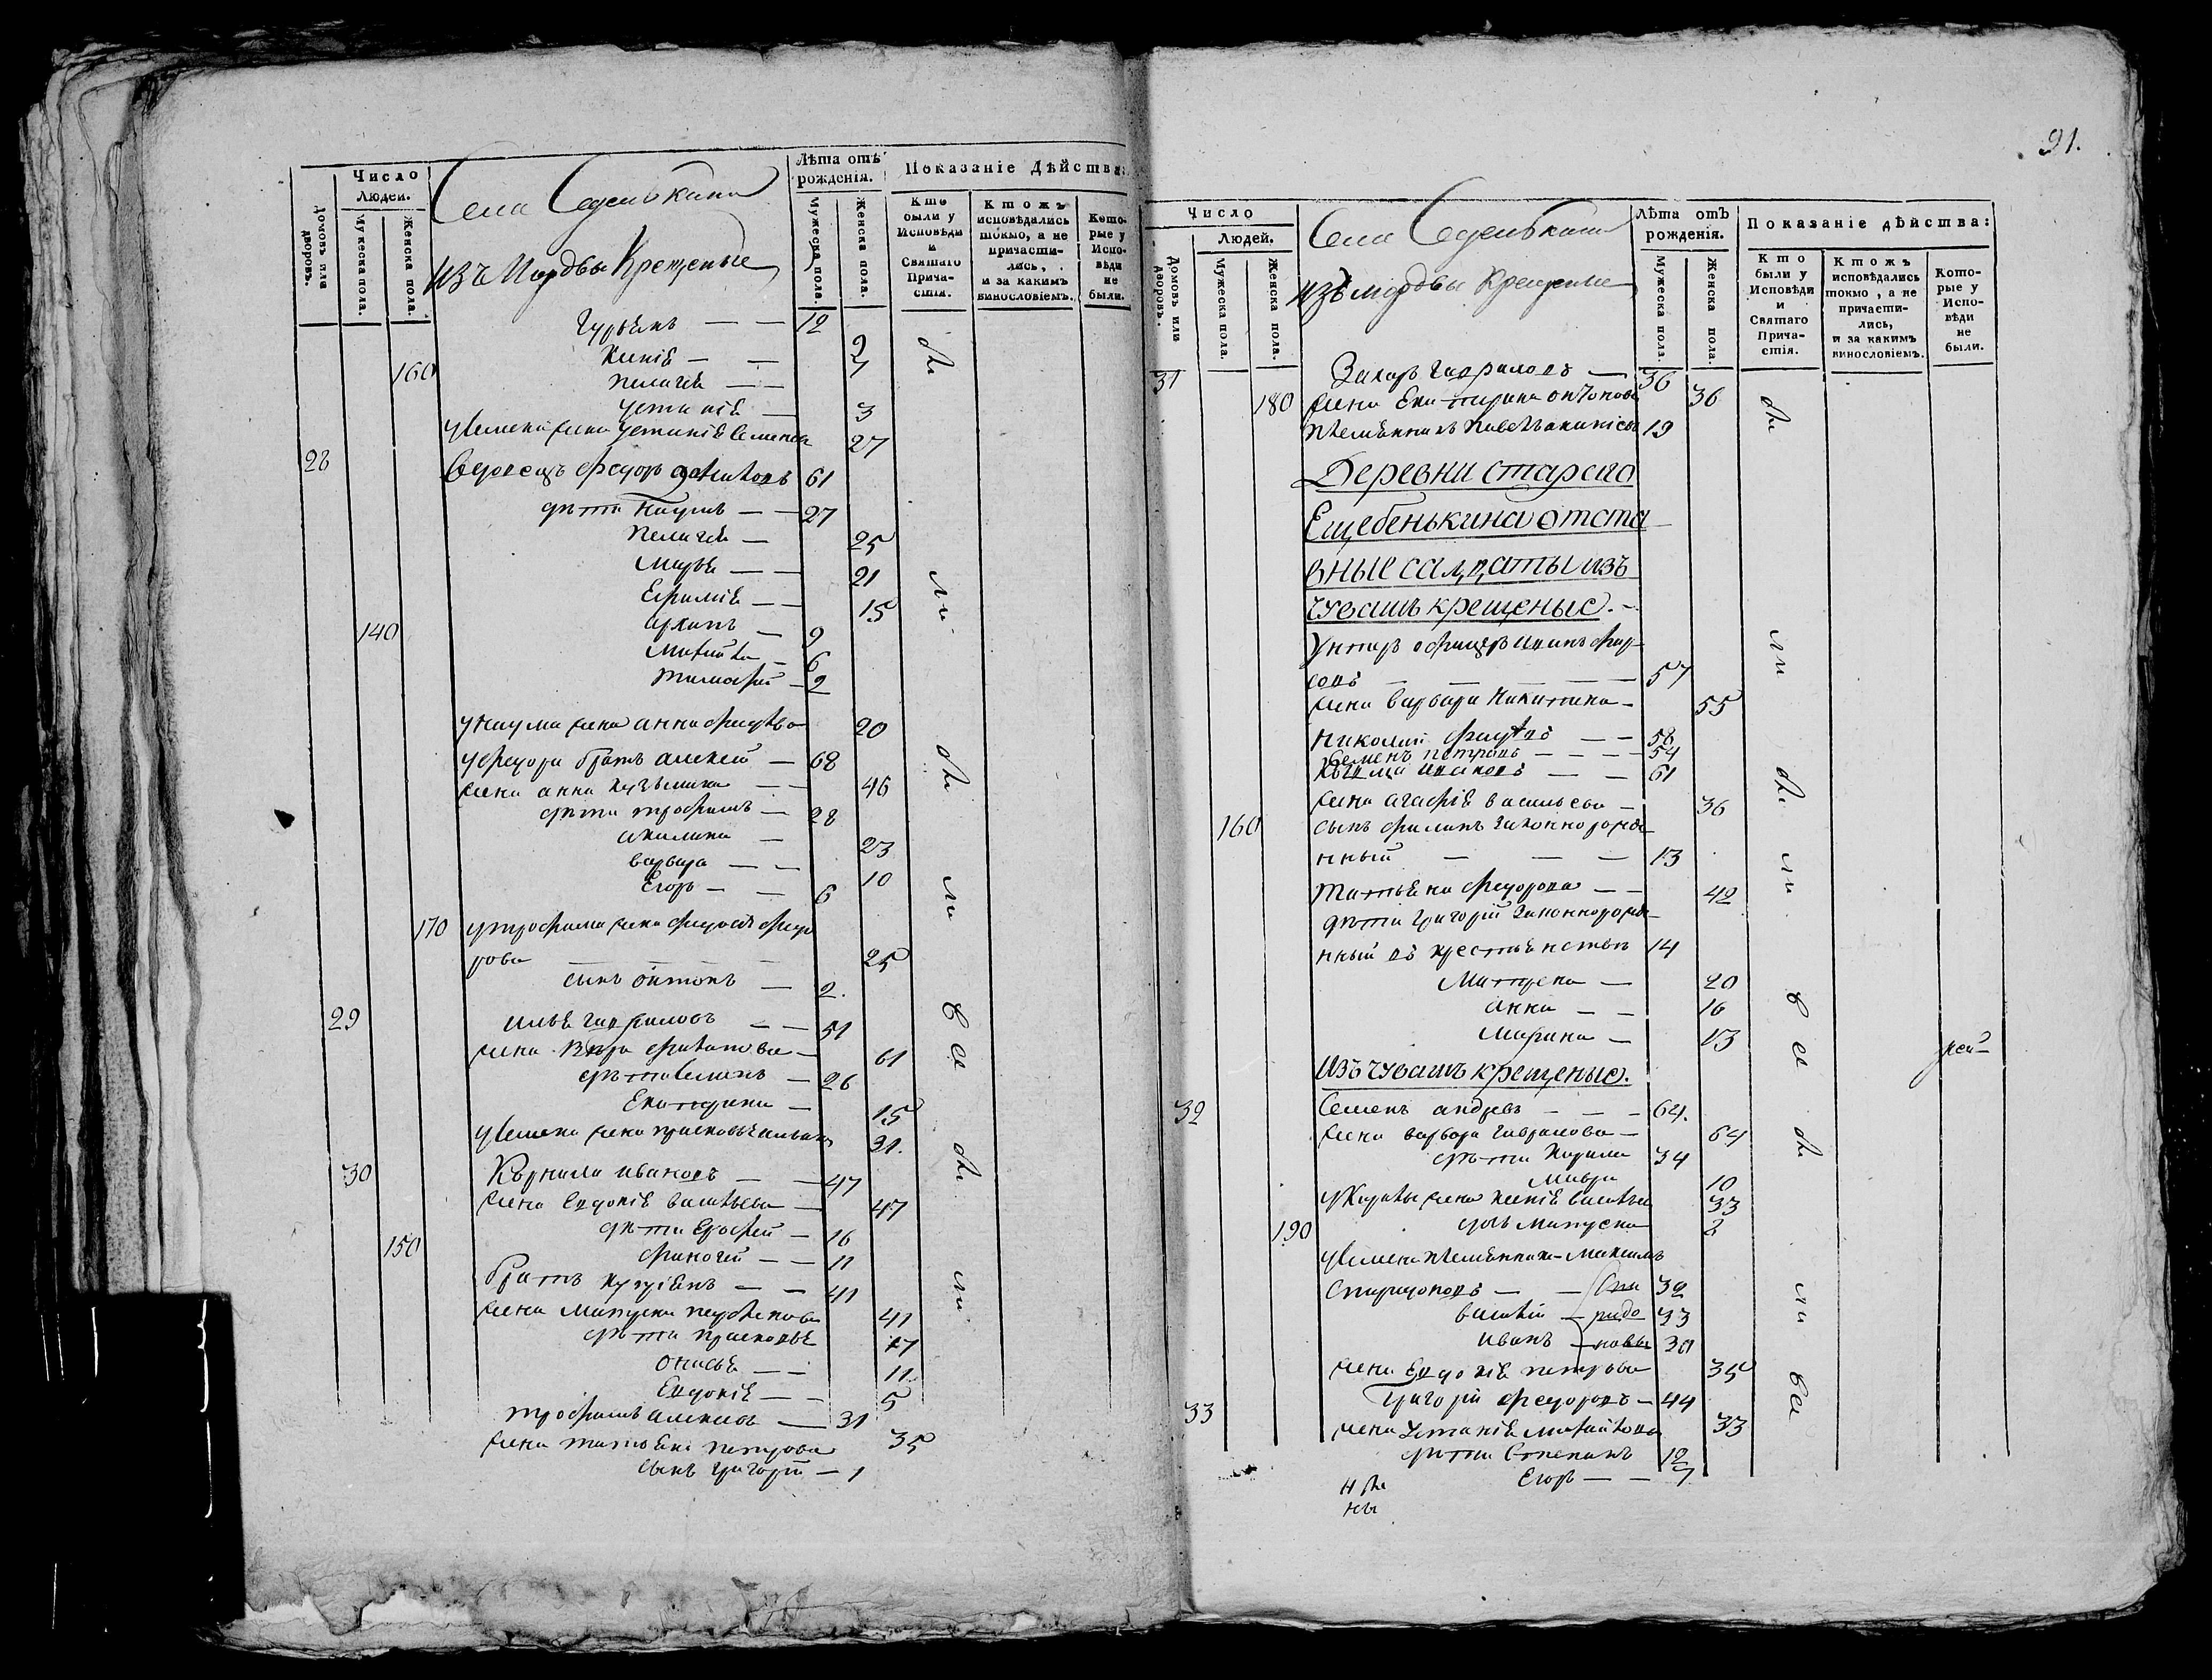 Число
Людей.
Домовъ или дворовъ.
Мужеска пола.
Женска пола.
Села Седелькина
изъ Мордвы Крещеные
Лѣта отъ рожденія.
Мужеска пола.
Женска пола.
Показаніе Дѣйства:
Кто были у Исповѣди и Святаго Прича-стія.
Ктожъ исповѣдались токмо, а не причасти-лись, и за какимъ винословіемъ.
Кото-рые у Испо-вѣди не были.
Гурьянъ — — 12
Ксенія — — 9
160 Пелагея — — 7
Устинія — 3
у Семена жена Устинія Семенова 27
28 Вдовецъ Федоръ 61
дѣти Наумъ — — 27
Пелагея — 25
Марья — — 21
Ефимія — — 15
140 Архипъ — 9
Михайла — 6
Тимофей — 2
у Наума жена Анна 20
у Федора братъ Алексей — 68
жена Анна Кузьмина — — 46
дѣти Трофимъ — 28
Акилина — 23
Варвара — — 10
Егоръ — — 6
170 у Трофима жена Федосья Федо
рова — — — — 25
сынъ Антонъ — 2.
29 Илья Гавриловъ — — 51
жена Вѣра — 61
дѣти Семенъ — 26
Екатерина — 15
у Семена жена Прасковья 31.
30 Кърнила Ивановъ — — 47
жена Евдокія Васильева — 47
дѣти Ерофей — 16
150 — — 11
братъ — — 41
жена Матрена 41
дѣти Прасковья 17
Онисья — — 11
Евдокія — — 5
Трофимъ Алексевъ — 31
жена Татьяна Петрова 35
сынъ Григорій — 1
бы
ли
бы
ли
все
бы
ли
91.
Число
Людей.
Домовъ или дворовъ.
Мужеска пола.
Женска пола.
Села Седелькина
изъ мордвы Крещеные
Лѣта отъ рожденія.
Мужеска пола.
Женска пола.
Показаніе дѣйства:
Кто были у Исповѣди и Святаго Прича-стія.
Ктожъ исповѣдались токмо, а не причасти-лись, и за какимъ винословіемъ.
Кото-рые у Испо-вѣди не были.
31 Захаръ Гавриловъ — 36
180 жена Екатерина Онтонова 36
племянникъ 19
Деревни Стараго
Ещебенькина отста
вные салдаты изъ
чувашъ крещеные. —
Унтеръ офицеръ
— — — — 57
жена Варвара Никитина — 55
Николай — — 58
Семенъ Петровъ — — — 54
Кузма Ивановъ — — 61
жена Агафія Васильева — 36
160 сынъ Филипъ законнорожде
нный — — — 13
Татьяна Федорова — — 42
дѣти Григорій законнорожде
нный въ крестьянствѣ 14
Матрена — 20
Анна — — 16
Марина — 13
Изъ чувашъ крещеные.
32 Семенъ Андревъ — — — 64.
жена Варвара Гаврилова — 64
дѣти Кирила 34
Мавра 10
у Кирилы жена Ксенія Васильева 33
190 дочь Матрена 2
у Семена племянники Максимъ
Спиридоновъ — — Спи 32
Василій — ридо 33
Иванъ — новы 30
жена Евдокія Петрова 35
33 Григорій Федоровъ — 44
жена Устинія Михайлова 33
дѣти Степанъ 12
Егоръ — — 7
бы
ли
бы
ли
все
бы
ли
все